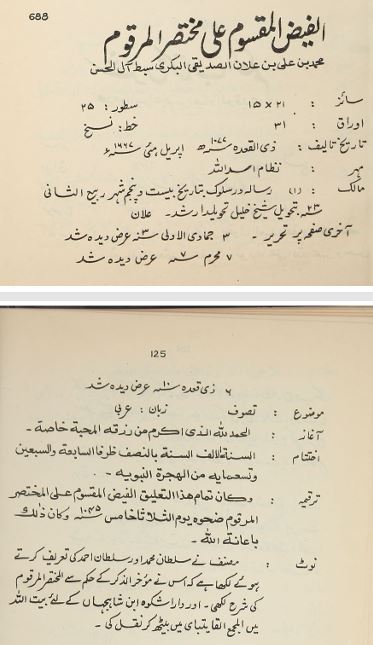 688
الفیض المقسوم علی مختصر المرقوم
محمد بن علی بن علان الصدیقی البکری سبط آل الحسن
سائز : ۲۱ × ۱۵ سطور : ۲۵
اوراق : ۳۱ خط : نسخ
تاریخ تالیف : ذی القعدہ ۱۰۷۷ھ اپریل مئی ۱۹۶۷ء
مہر : نظام اسد اللہ
مالک : (۱) رسالہ در سلوک بتاریخ بیست و پنجم شہر ربیع الثانی
۲۳ سنہ بتحویل شیخ خلیل تحویلدار شد۔ علان
آخری صفحہ پر تحریر ۔ ۳ جمادی الاولی ۳ سنہ عرض دیدہ شد
۷ محرم ۷ سنہ عرض دیدہ شد
125
۶ ذی قعدہ ۱۰ سنہ عرض دیدہ شد
موضوع : تصوف زبان : عربی
آغاز : الحمد للہ الذی اکرم من رزقہ المحبة خاصة ۔
اختتام : السنة السنة بالنصف ظرفا السابعة والسبعین
وتسعمایه من الهجرة النبویه ۔
ترقیمہ : وکان تمام هذا التعلیق الفیض المقسوم علی المختصر
المرقوم ضحوہ یوم الثلاثا خامس ۱۰۴۵ سنہ وکان ذلک
باعانة الله ۔
نوٹ : مصنف نے سلطان محمد اور سلطان احمد کی تعریف کرتے
ہوئے لکھا ہے کہ اس نے مؤخر الذکر کے حکم سے المختصر المرقوم
کی شرح لکھی ۔ اور دارا شکوہ ابن شاہجہاں کے لئے بیت اللہ
میں المجمع القایتبای میں بیٹھ کر نقل کی ۔